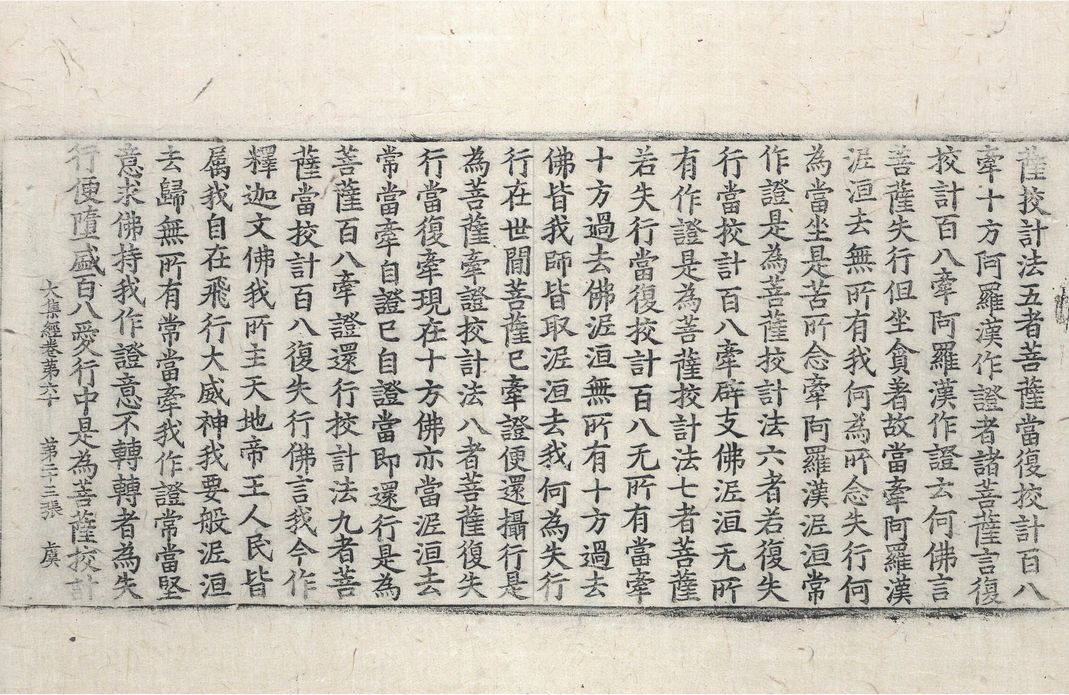 薩挍計法五者菩薩當復挍計百八
牽十方阿羅漢作證者諸菩薩言復
挍計百八牽阿羅漢作證云何佛言
菩薩失行但坐貪著故當牽阿羅漢
泥洹去無所有我何為所念失行何
為當坐是苦所念牽阿羅漢泥洹常
作證是為菩薩挍計法六者若復失
行當挍計百八牽辟支佛泥洹无所
有作證是為菩薩挍計法七者菩薩
若失行當復挍計百八无所有當牽
十方過去佛泥洹無所有十方過去
佛皆我師皆取泥洹去我何為失行
行在世間菩薩已牽證便還攝行是
為菩薩牽證挍計法八者菩薩復失
行當復牽現在十方佛亦當泥洹去
常當牽自證已自證當即還行是為
菩薩百八牽證還行挍計法九者菩
薩當挍計百八復失行佛言我今作
釋迦文佛我所主天地帝王人民皆
屬我自在飛行大威神我要般泥洹
去歸無所有常當牽我作證常當堅
意求佛持我作證意不轉轉者為失
行便墮盛百八愛行中是為菩薩挍計
大集經卷第六十　第二十三張　虞